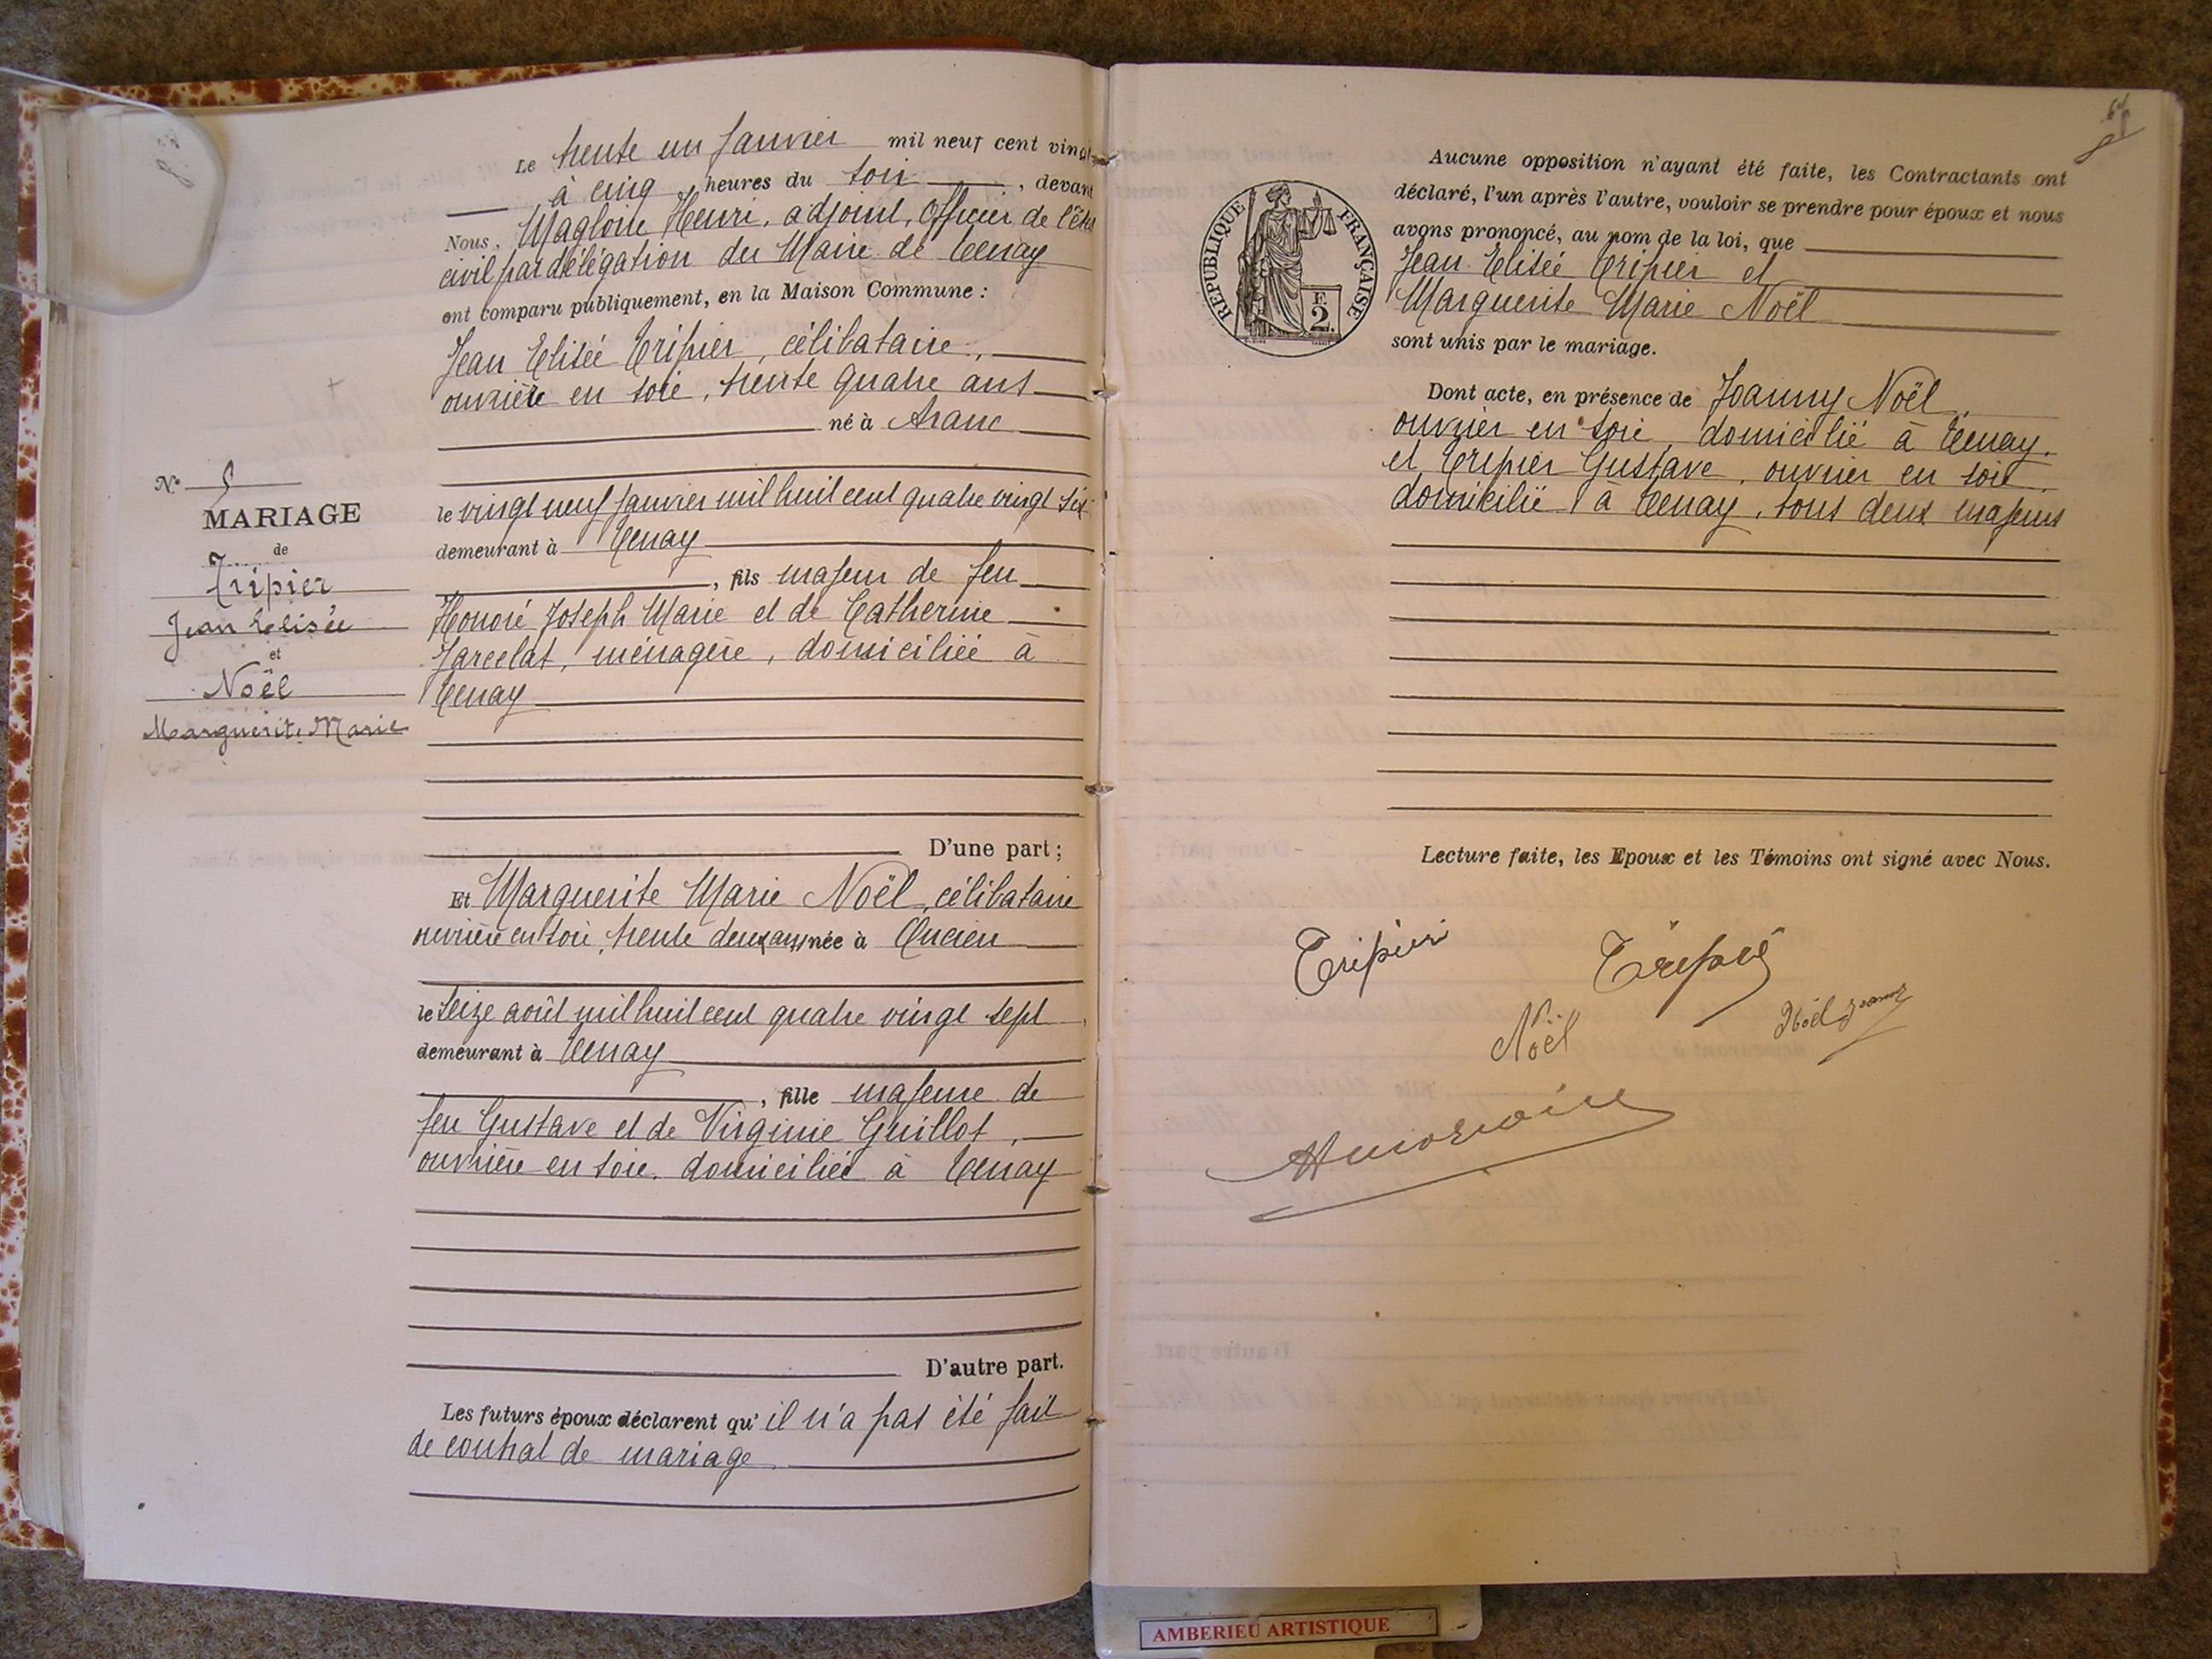 Le trente un Janvier mil neuf cent vingt
à cinq heures du soir, devant
Nous, Magloire Henri, adjoint, Officier de l'état
civil par délégation du Maire de Tenay
ont comparu publiquement, en la Maison Commune :
Jean Elisée Tripier, célibataire,
ouvrière en soie, trente quatre ans
né à Aranc
le vingt neuf Janvier mil huit cent quatre vingt six
demeurant à Tenay
, fils majeur de feu
Honoré Joseph Marie et de Catherine
Jarcelat, ménagère, domiciliée à
Tenay
D'une part ;
Et Marguerite Marie Noël, célibataire
ouvrière en soie, trente deux ans, née à Oncieu
le seize août mil huit cent quatre vingt sept
demeurant à Tenay
, fille majeure de
feu Gustave et de Virginie Guillot,
ouvrière en soie, domiciliée à Tenay
D'autre part.
Les futurs époux déclarent qu'il n'a pas été fait
de contrat de mariage
N°
MARIAGE
de
Tripier
Jean Elisée
et
Noël
Marguerite Marie
RÉPUBLIQUE FRANÇAISE
F.
2.
Aucune opposition n'ayant été faite, les Contractants ont
déclaré, l'un après l'autre, vouloir se prendre pour époux et nous
avons prononcé, au nom de la loi, que
Jean Elisée Tripier et
Marguerite Marie Noël
sont unis par le mariage.
Dont acte, en présence de Joanny Noël,
ouvrier en soie, domicilié à Tenay,
et Tripier Gustave, ouvrier en soie,
domicilié à Tenay, tous deux majeurs
Lecture faite, les Epoux et les Témoins ont signé avec Nous.
Tripier
Noël
Noël Joanny
AMBERIEU ARTISTIQUE